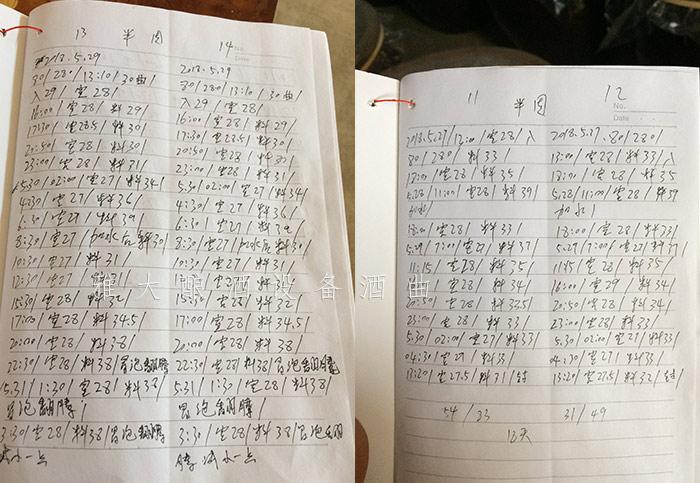 13 半周 14
2018.5.29
30/28°/13:10/30曲/
入29/室28/
16:00/室28/料29/
17:30/室285/料30/
20:50/室28/料30/
23:00/室28/料31/
5.30/02:00/室27/料34/
4:30/室27/料36/
6:30/室27/料39/
8:30/室27/加水后料30/
10:30/室27/料31/
12:30/室27/料31/
15:30/室28/料32/
17:00/室28/料34.5/
20:00/室28/料38/
22:30/室28/料38/冒泡翻腾
5.31/1:30/室28/料38/
冒泡翻腾/
3:30/室28/料38/冒泡翻腾
减小一点
No.
Date
2018.5.29
30/280/13:10/30曲/
入29/室28/
16:00/室28/料29/
17:30/室285/料30/
20:50/室28/料30
23:00/室28/料31
5.30/02:00/室27/料34/
4:30/室27/料36/
6:30/室27/料39/
8:30/室27/加水后料30
10:30/室27/料31/
12:30/室27/料31/
15:30/室28/料32/
17:00/室28/料34.5/
20:00/室28/料38/
22:30/室28/料38/冒泡翻腾
5.31/1:30/室28/料38/
冒泡翻腾/
3:30/室28/料38/冒泡翻
腾 减小一点
11 半周 12
No.
Date
2018.5.27/12:00/室28/入
30/280/料33/
18:00/室28/料35/
5.28/11:00/室28/料39/
加水/
18:00/室28/料33/
5.29/7:00/室27/料37/
11:15/室28/料35/
室28/料34/
20:50/室28/料335/
23:00/室28/料33/
5.30/02:00/室27/料33/
04:30/室27/料33/
13:20/室27.5/料31/封
54/33
2018.5.27.30/280/
13:00/室28/料33/入
18:00/室28/料35
5.28/11:00/室28/料39
加水/
18:00/室28/料33/
5.29/7:00/室27/料37/
11:15/室28/料35/
16:00/室29/料34/
20:50/室28/料34/
23:00/室28/料33/
5.30/02:00/室27/料33/
04:30/室27/料33/
13:20/室27.5/料32/封/
31/49
12天
雅大酿酒设备酒曲